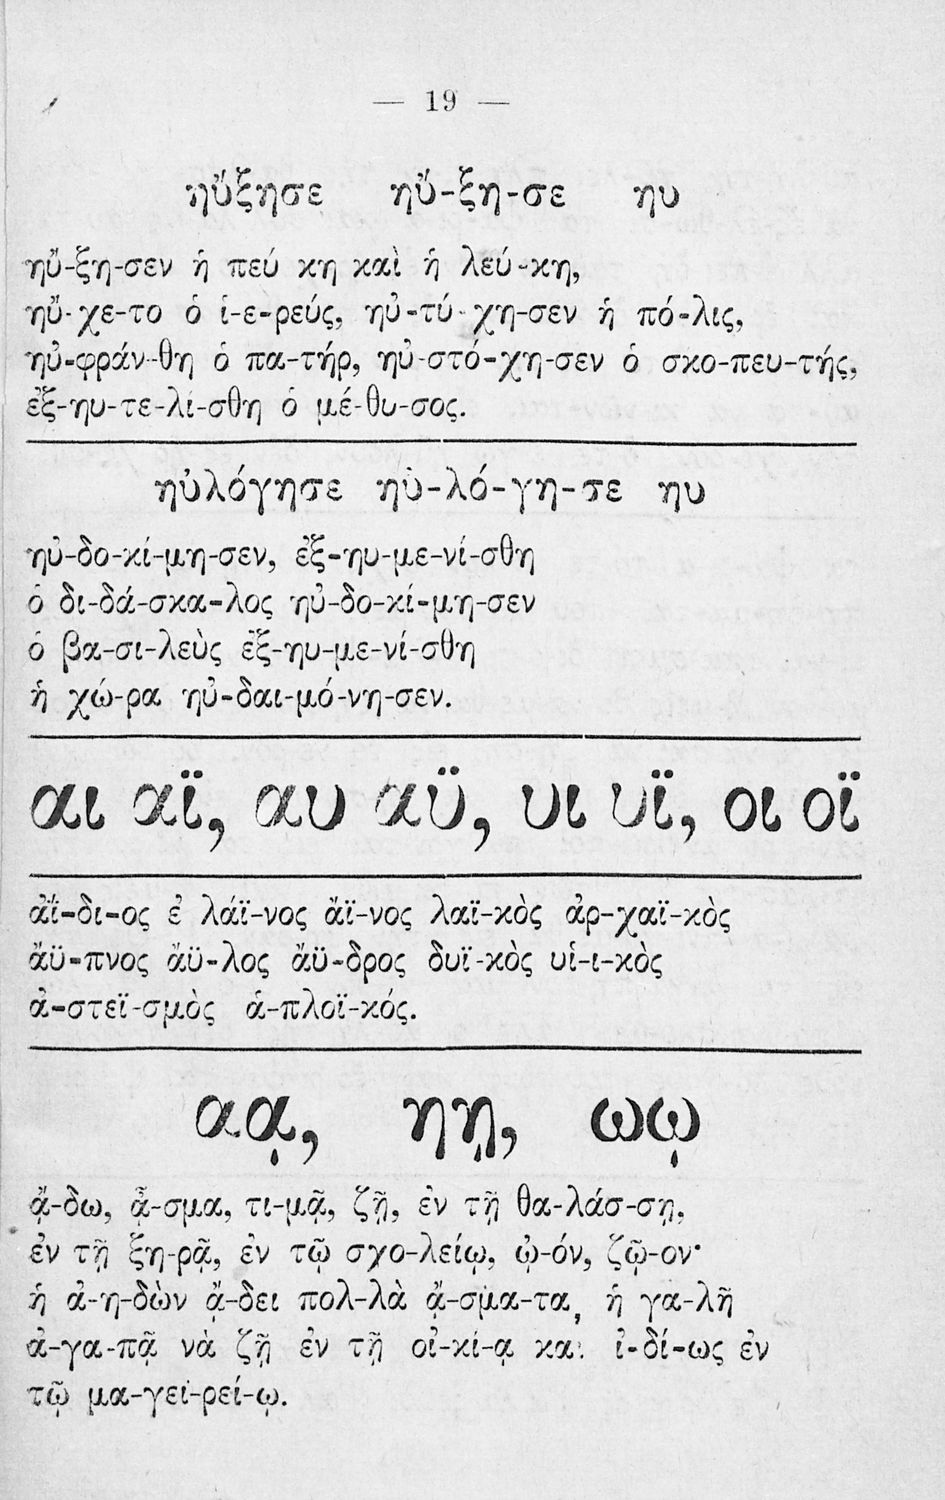 — 19 —
ηὔξησε ηὔ-ξη-σε ηυ
ηὔ-ξη-σεν ἡ πεύ κη καὶ ἡ λεύ-κη,
ηὔ-χε-το ὁ ἱ-ε-ρεύς, ηὐ-τύ-χη-σεν ἡ πό-λις,
ηὐ-φράν-θη ὁ πα-τήρ, ηὐ-στό-χη-σεν ὁ σκο-πευ-τής,
ἐξ-ηυ-τε-λί-σθη ὁ μέ-θυ-σος.
ηὐλόγησε ηὐ-λό-γη-σε ηυ
ηὐ-δο-κί-μη-σεν, ἐξ-ηυ-με-νί-σθη
ὁ δι-δά-σκα-λος ηὐ-δο-κί-μη-σεν
ὁ βα-σι-λεὺς ἐξ-ηυ-με-νί-σθη
ἡ χώ-ρα ηὐ-δαι-μό-νη-σεν.
αι αϊ, αυ αϋ, υι υϊ, οι οϊ
ἀΐ-δι-ος ἐ λάϊ-νος ἄϊ-νος λαϊ-κὸς ἀρ-χαϊ-κὸς
ἄϋ-πνος ἄϋ-λος ἄϋ-δρος δυϊ-κὸς υἱ-ι-κὸς
ἀ-στεϊ-σμὸς ἁ-πλοϊ-κός.
αᾳ, ηῃ, ωῳ
ᾄ-δω, ᾆ-σμα, τι-μᾷ, ζῇ, ἐν τῇ θα-λάσ-σῃ,
ἐν τῇ ξη-ρᾷ, ἐν τῷ σχο-λείῳ, ᾠ-όν, ζῷ-ον·
ἡ ἀ-η-δὼν ᾄ-δει πολ-λὰ ᾄ-σμα-τα, ἡ γα-λῆ
ἀ-γα-πᾷ νὰ ζῇ ἐν τῇ οἰ-κί-ᾳ κα. ἰ-δί-ως ἐν
τῷ μα-γει-ρεί-ῳ.